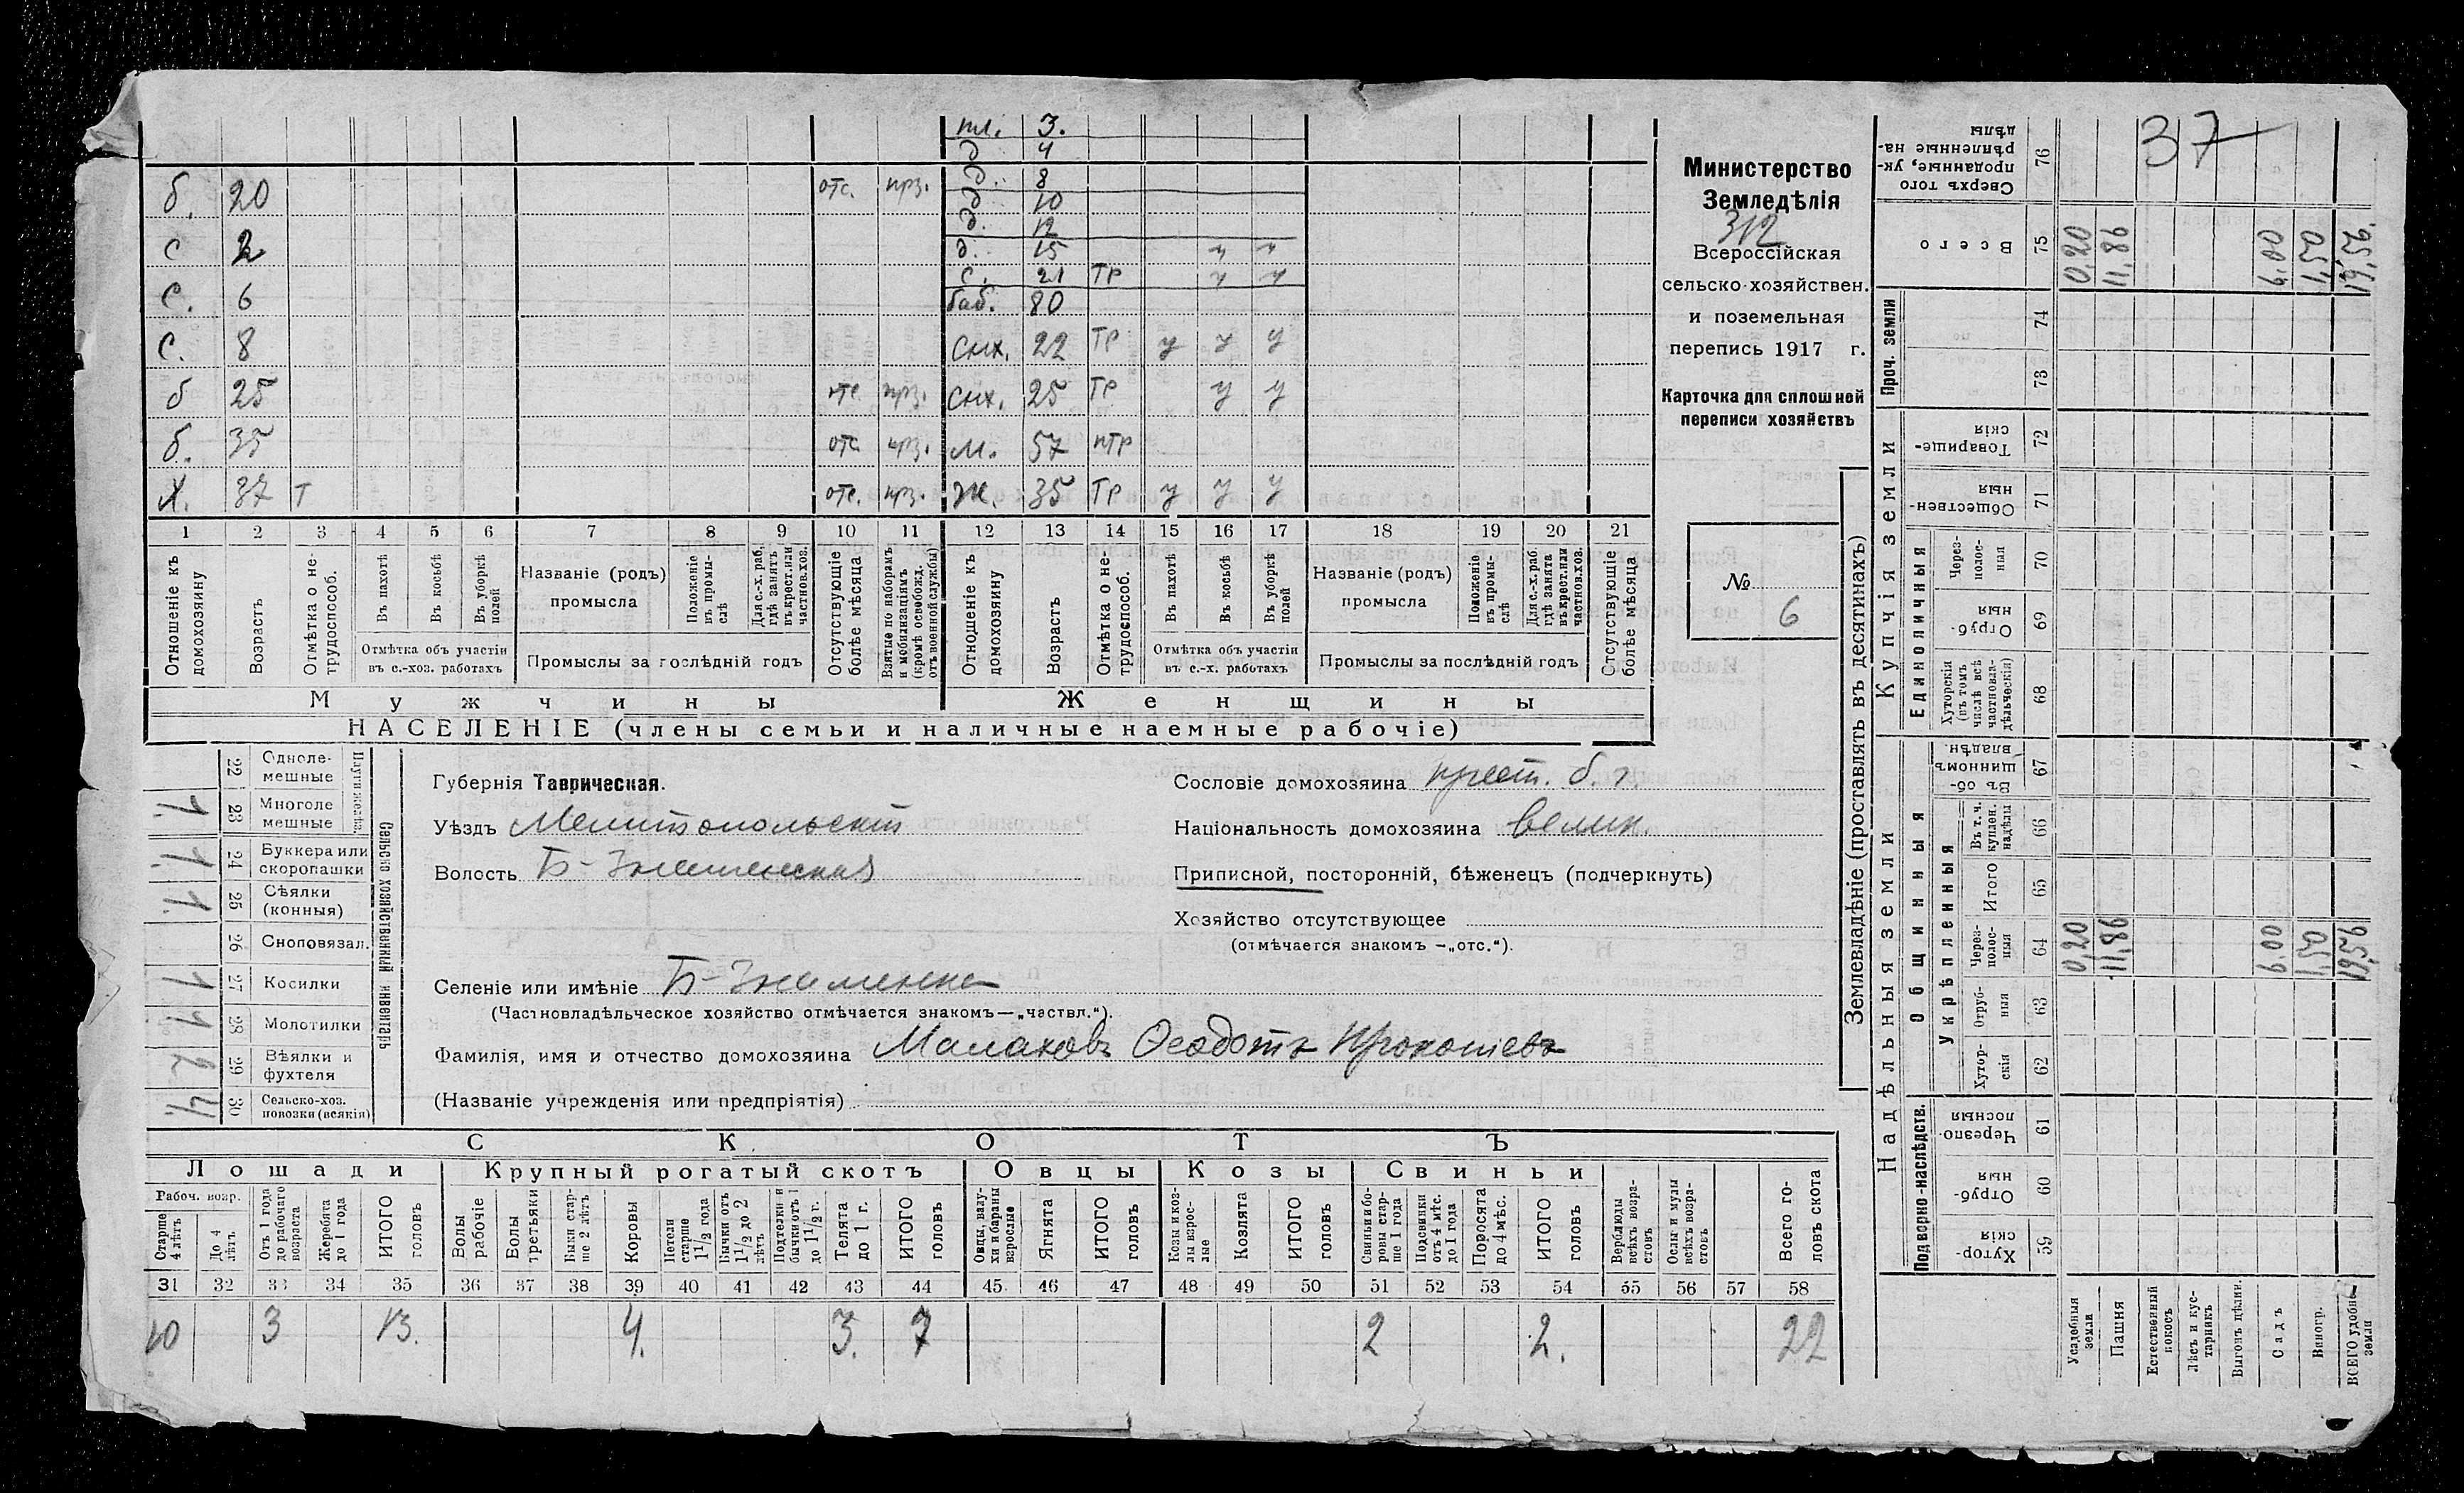 37
Министерство
Земледѣлія
312
Всероссійская
сельско-хозяйствен.
и поземельная
перепись 1917 г.
Карточка для сплошней
переписи хозяйствъ
№
6
пл. 3.
д 4
д. 8
д 10
д. 12
д. 15 у у
с. 21 ТР у у
баб. 80
б. 20 отс. прз.
с 2
с. 6
с. 8 снх. 22 ТР у у у
б 25 отс. прз. снх. 25 ТР у у
б. 35 отс. прз. м. 57 птр
Х. 37 Т отс. прз. ж. 35 ТР у у у
1 2 3 4 5 6 7 8 9 10 11 12 13 14 15 16 17 18 19 20 21
Отношеніе къ домохозяину
Возрастъ
Отмѣтка о нетрудоспособ.
Въ пахотѣ
Въ косьбѣ
Въ уборкѣ полей
Отмѣтка объ участіи
въ с.-хоз. работахъ
Названіе (родъ)
промысла
Положеніе въ промыслѣ
Для с.-х. раб. гдѣ занятъ въ крест. или частнов. хоз.
Промыслы за послѣдній годъ
Отсутствующіе болѣе мѣсяца
Взятые по наборамъ и мобилизаціямъ (кромѣ освобожд. отъ военной службы)
Отношеніе къ домохозяину
Возрастъ
Отмѣтка о нетрудоспособ.
Въ пахотѣ
Въ косьбѣ
Въ уборкѣ полей
Отмѣтка объ участіи
въ с.-х. работахъ
Названіе (родъ)
промысла
Положеніе въ промыслѣ
Для с.-х. раб. гдѣ занята въ крест. или частнов. хоз.
Промыслы за послѣдній годъ
Отсутствующіе болѣе мѣсяца
Мужчины Женщины
НАСЕЛЕНІЕ (члены семьи и наличные наемные рабочіе)
Сельско хозяйственный инвентарь
22 Одноле-
мешные
1. 23 Многоле
мешные
1. 24 Буккера или
скоропашки
1. 25 Сѣялки
(конныя)
26 Сноповязал.
1 27 Косилки
1 28 Молотилки
2 29 Вѣялки и
фухтеля
4. 30 Сельско-хоз.
повозки (всякія)
Губернія Таврическая.
Уѣздъ Мелитопольскій
Волость Б-Знаменская
Селеніе или имѣніе Б-Знаменка
(Частновладѣльческое хозяйство отмѣчается знакомъ—„частвл.“).
Фамилія, имя и отчество домохозяина Малаховъ Феодотъ Прокопіевъ
(Названіе учрежденія или предпріятія)
Сословіе домохозяина крест. б. г.
Національность домохозяина велик.
Приписной, посторонній, бѣженецъ (подчеркнуть)
Хозяйство отсутствующее
(отмѣчается знакомъ —„отс.“).
СКОТЪ
Лошади Крупный рогатый скотъ Овцы Козы Свиньи
Рабоч. возр.
Старше 4 лѣтъ
До 4 лѣтъ
Отъ 1 года до рабочаго возраста
Жеребята до 1 года
ИТОГО головъ
Волы рабочіе
Волы третьяки
Быки старше 2 лѣтъ
Коровы
Нетели старше 1 1/2 года
Бычки отъ 1 1/2 до 2 лѣтъ
Подтелки и бычки отъ 1 до 1 1/2 г.
Телята до 1 г.
ИТОГО головъ
Овцы, валухи и бараны взрослые
Ягнята
ИТОГО головъ
Козы и козлы взрослые
Козлята
ИТОГО головъ
Свиньи и боровы старше 1 года
Подсвинки отъ 4 мѣс. до 1 года
Поросята до 4 мѣс.
ИТОГО головъ
Верблюды всѣхъ возрастовъ
Ослы и мулы всѣхъ возрастовъ
Всего головъ скота
31 32 33 34 35 36 37 38 39 40 41 42 43 44 45 46 47 48 49 50 51 52 53 54 55 56 57 58
10 3 13. 4. 3. 7 2 2. 22
Землевладѣніе (проставлять въ десятинахъ)
Надѣльныя земли
Купчія земли
Проч. земли
Подворно-наслѣдств.
Общинныя
Укрѣпленныя
Единоличныя
Хуторскія 59
Отрубныя 60
Черезполосныя 61
Хуторскія 62
Отрубныя 63
Черезполосныя 64
Итого 65
Въ т. ч. куплен. надѣлы 66
Въ общинномъ владѣн. 67
Хуторскія (въ томъ числѣ всѣ частновладѣльческія) 68
Отрубныя 69
Черезполосныя 70
Общественныя 71
Товарищескія 72
73
74
Всего 75
Сверхъ того проданные, укрѣпленные надѣлы 76
Усадебныя земли 0,20 0,20
Пашня 11,86 11,86
Естественный покосъ
Лѣсъ и кустарникъ
Выгонъ цѣлин.
Садъ 6,00 6,00
Виногр. 1,50 1,50
ВСЕГО удобной земли 19,56 19,56